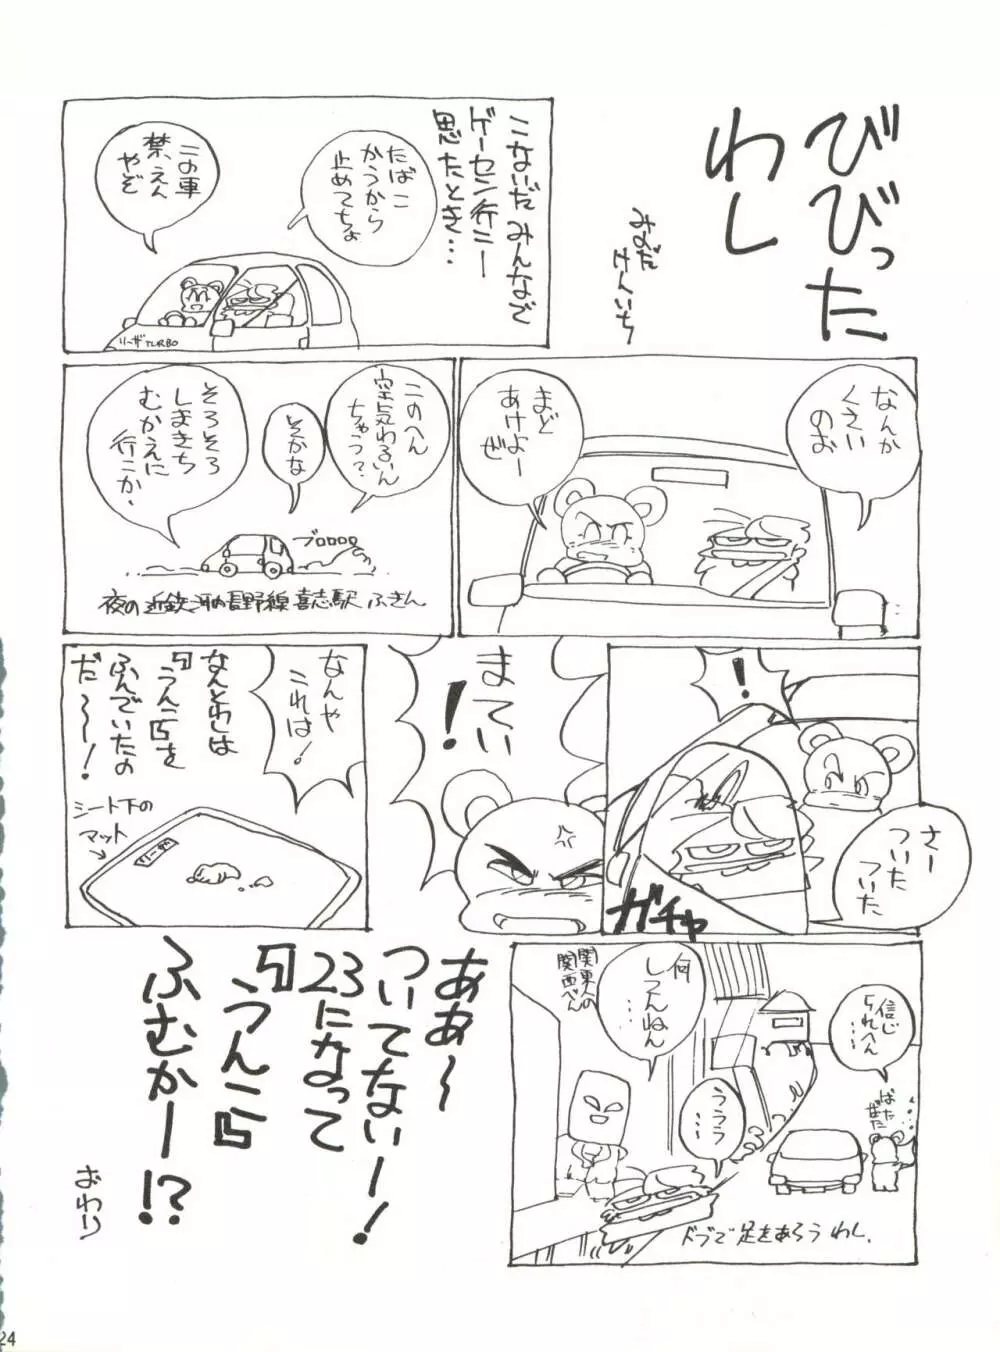 びびった
わし
みのだ
けんいち
こないだ みんなで
ゲーセン行こー
思たとき…
たばこ
かうから
止めてちょ
この車
禁えん
やぞ
リーザ TURBO
なんか
くさい
のお
まど
あけよー
ぜ
このへん
空気わるいん
ちゃう？
そかな
そろそろ
しまきち
むかえに
行こか．
ブロロロロ
夜の近鉄河内長野線喜志駅ふきん
！
さー
ついた
ついた
ガチャ
まてい
！
なんや
これは！
なんとわしは
『うんこ』を
ふんでいたの
だ〜！
シート下の
マット
リーザ
信じ
られへん
……
ばた
ばた
何
しつんねん
……
関東人の
関西べん
うううう
…
ドブで足をあらうわし．
ああ〜
ついてないー！
23になって
『うんこ』
ふむかー!?
おわり
24